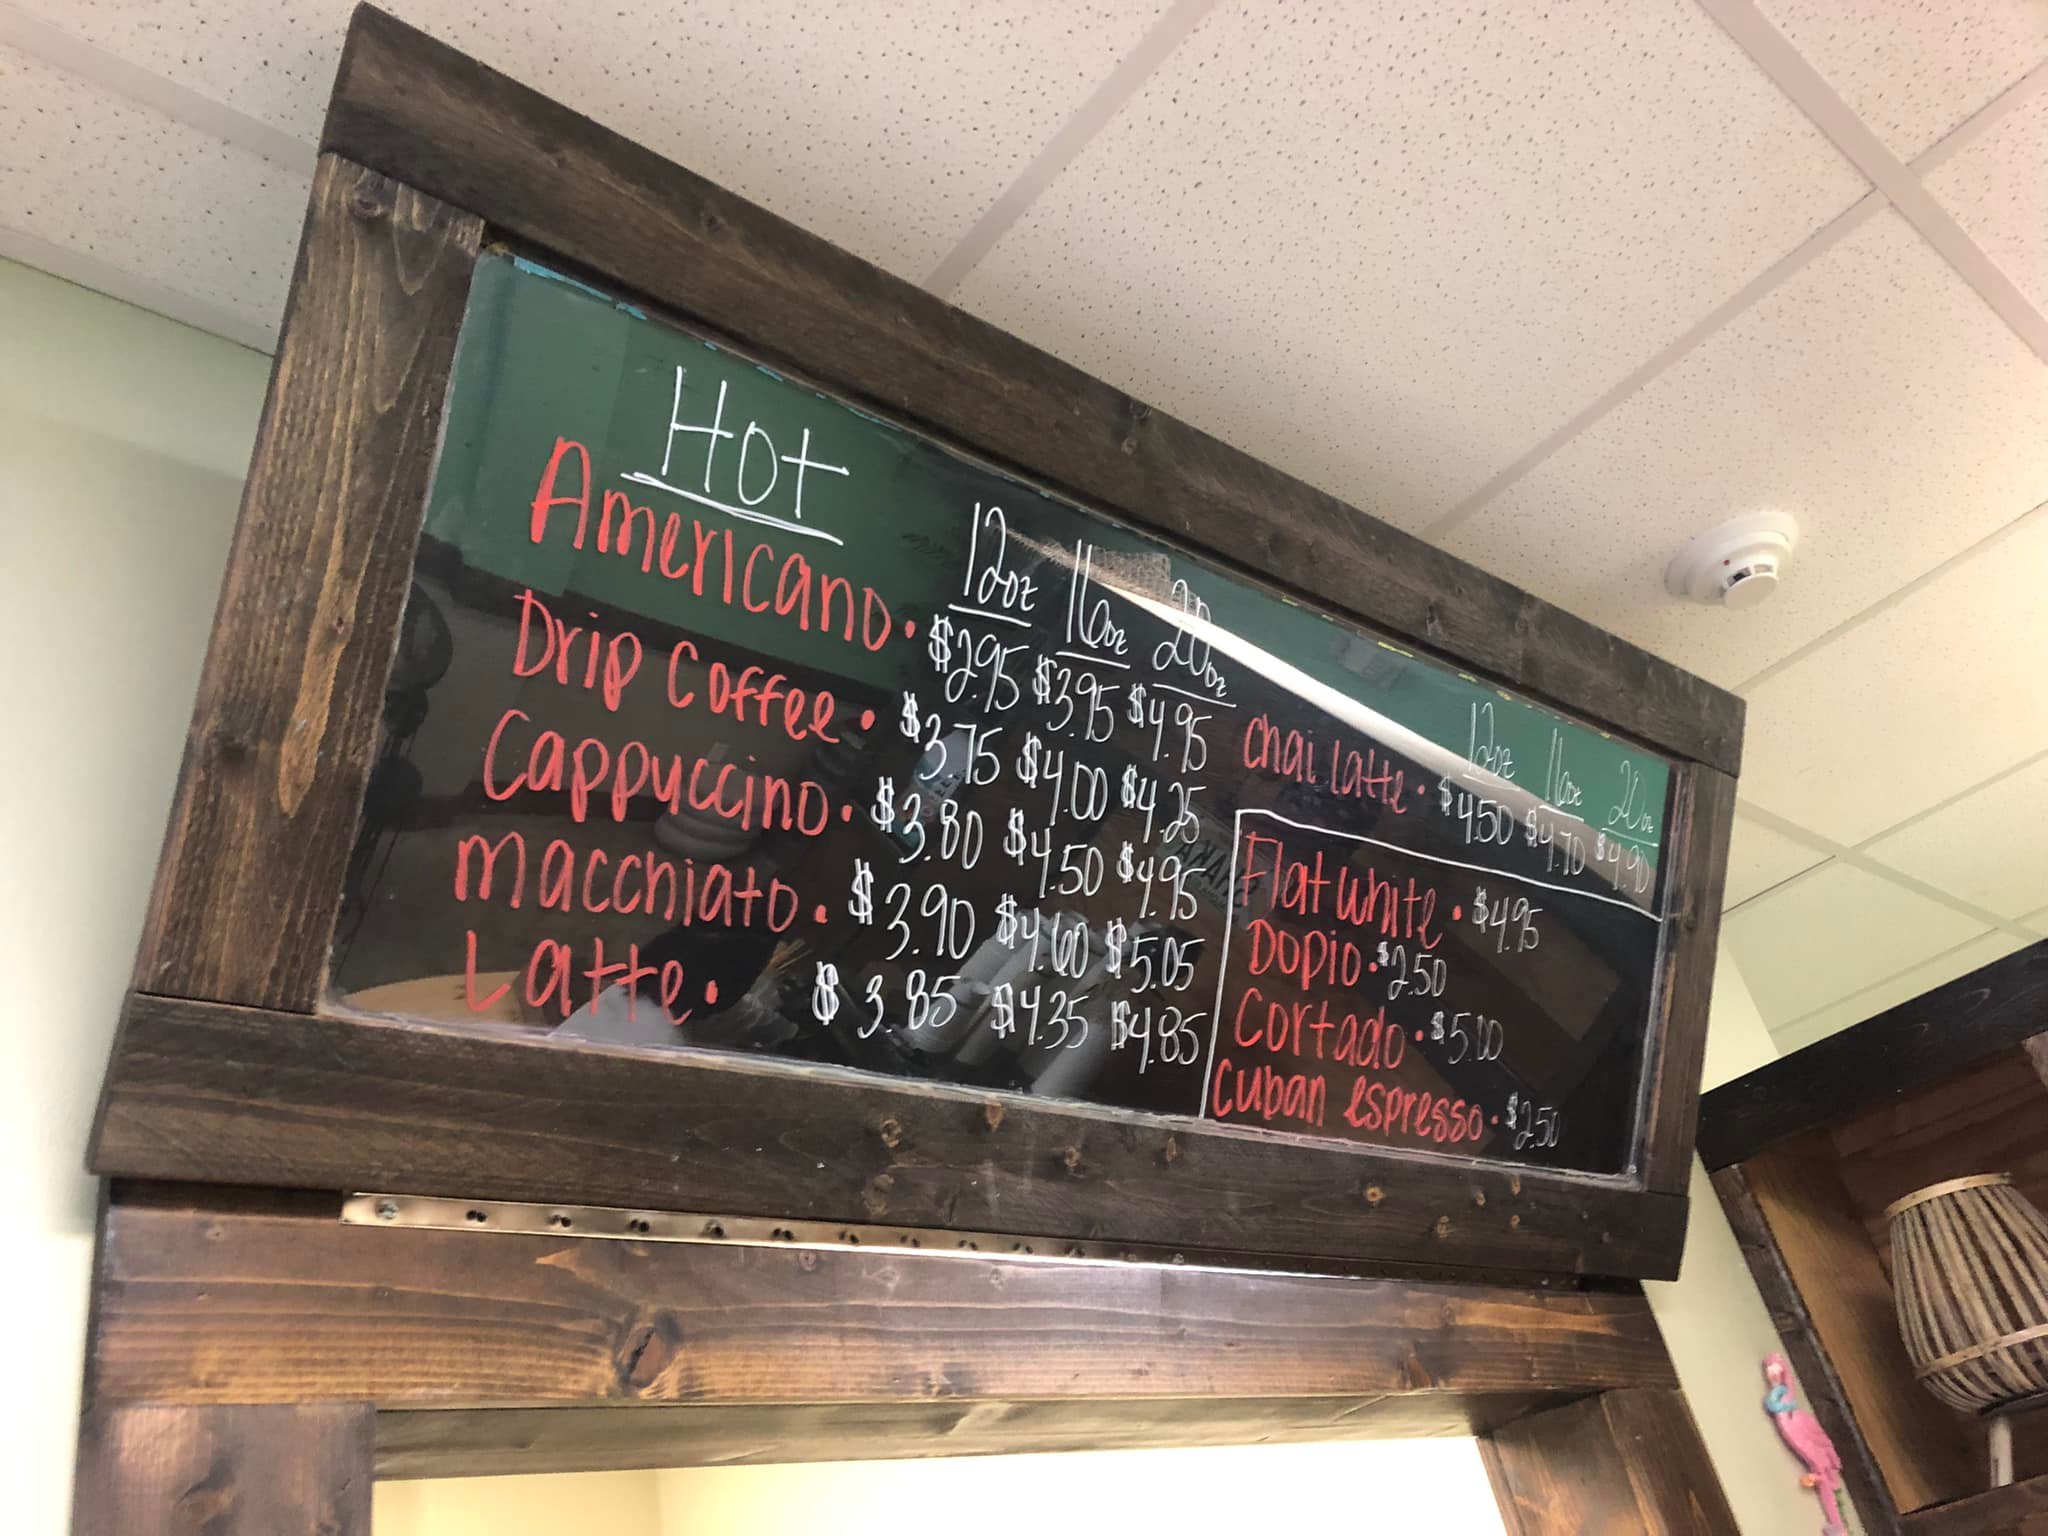 Hot
12oz 16oz 20oz
Americano • $2.95 $3.95 $4.95
Drip Coffee • $3.75 $4.00 $4.25
Cappuccino • $3.80 $4.50 $4.95
Macchiato • $3.90 $4.60 $5.05
Latte • $3.85 $4.35 $4.85
12oz 16oz 20oz
Chai latte • $4.50 $4.70 $4.90
Flat white • $4.95
Dopio • $2.50
Cortado • $5.00
Cuban espresso • $2.50